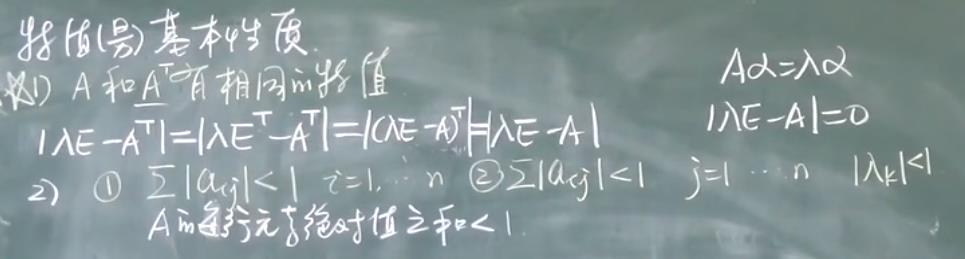 特值(量)基本性质.
☆1) A和A^T有相同的特值
Aα=λα
|λE-A^T|=|λE^T-A^T|=|(λE-A)^T|=|λE-A|
|λE-A|=0
2) ① ∑|a_ij|<1 i=1,…n ② ∑|a_ij|<1 j=1…n |λ_k|<1
A的每行元素绝对值之和<1.